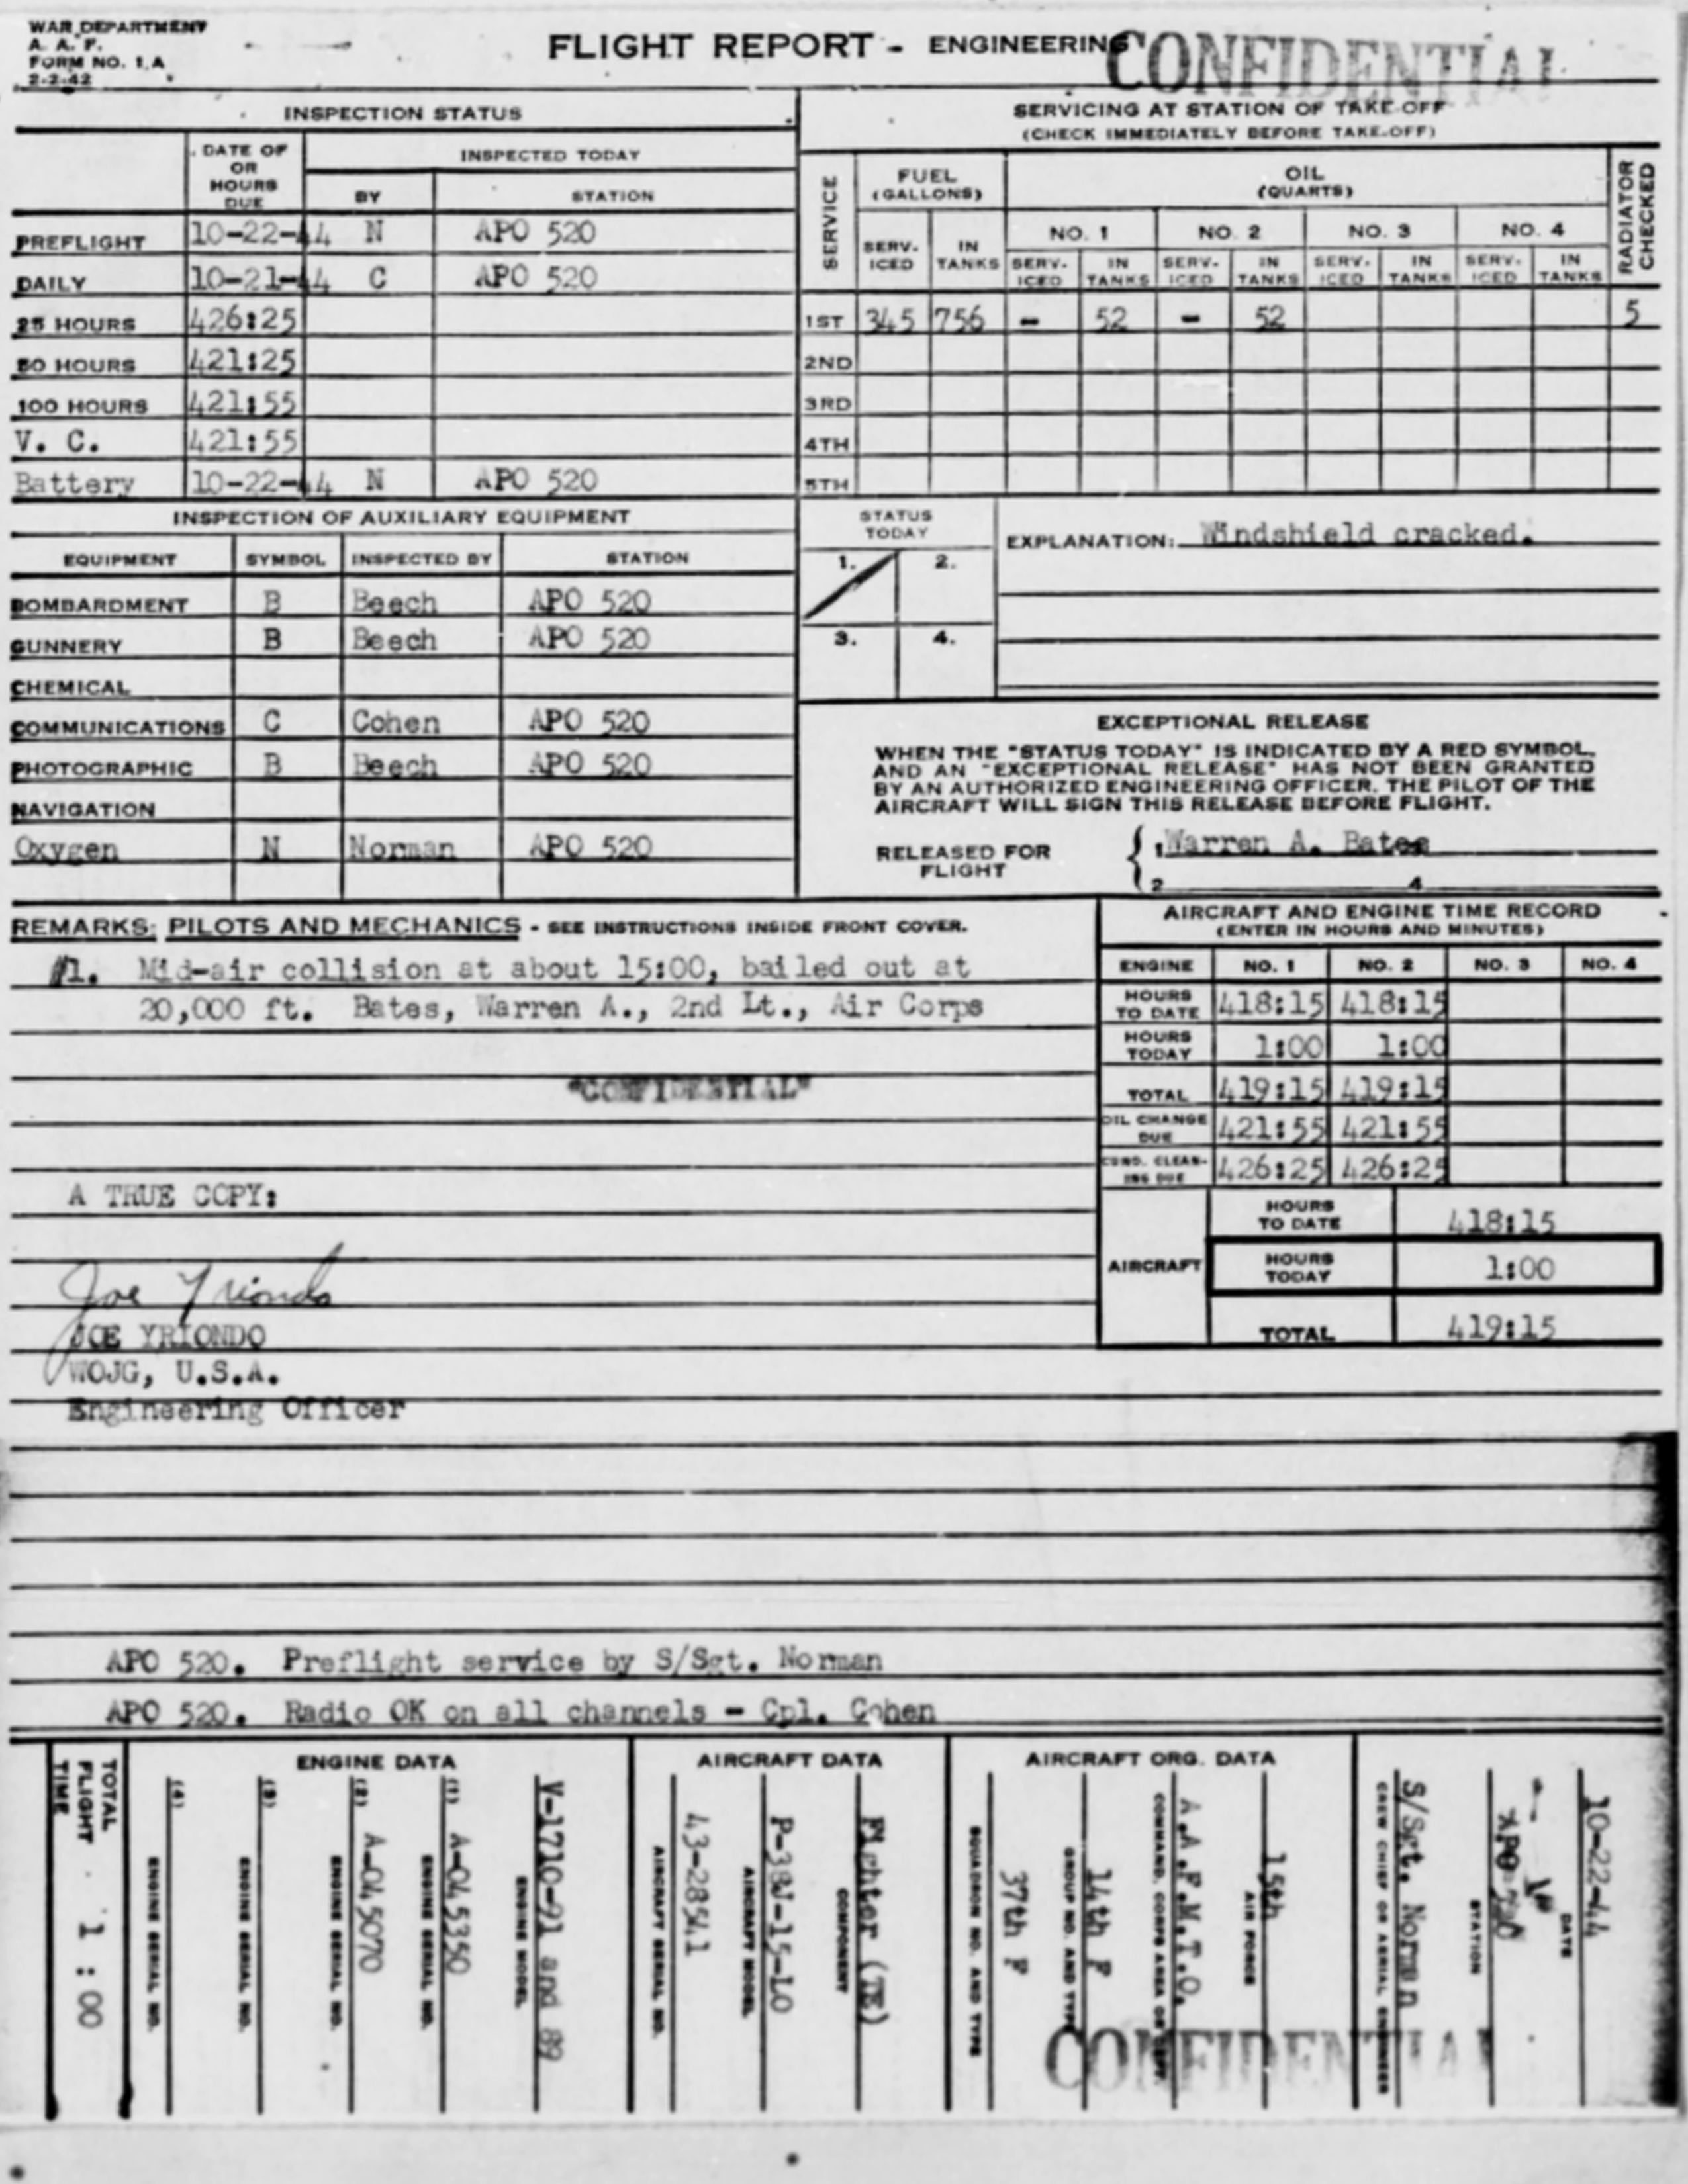 WAR DEPARTMENT
A. A. F.
FORM NO. 1 A
2-2-42
FLIGHT REPORT - ENGINEERING
CONFIDENTIAL
INSPECTION STATUS
DATE OF OR HOURS DUE
INSPECTED TODAY
BY STATION
PREFLIGHT 10-22-44 N APO 520
DAILY 10-21-44 C APO 520
25 HOURS 426:25
50 HOURS 421:25
100 HOURS 421:55
V. C. 421:55
Battery 10-22-44 N APO 520
SERVICING AT STATION OF TAKE-OFF
(CHECK IMMEDIATELY BEFORE TAKE-OFF)
SERVICE
FUEL (GALLONS)
OIL (QUARTS)
RADIATOR CHECKED
NO. 1 NO. 2 NO. 3 NO. 4
SERV-ICED IN TANKS SERV-ICED IN TANKS SERV-ICED IN TANKS SERV-ICED IN TANKS SERV-ICED IN TANKS
1ST 345 756 - 52 - 52 5
2ND
3RD
4TH
5TH
INSPECTION OF AUXILIARY EQUIPMENT
EQUIPMENT SYMBOL INSPECTED BY STATION
BOMBARDMENT B Beech APO 520
GUNNERY B Beech APO 520
CHEMICAL
COMMUNICATIONS C Cohen APO 520
PHOTOGRAPHIC B Beech APO 520
NAVIGATION
Oxygen N Norman APO 520
STATUS TODAY
1. 2.
3. 4.
EXPLANATION: Windshield cracked.
EXCEPTIONAL RELEASE
WHEN THE "STATUS TODAY" IS INDICATED BY A RED SYMBOL,
AND AN "EXCEPTIONAL RELEASE" HAS NOT BEEN GRANTED
BY AN AUTHORIZED ENGINEERING OFFICER, THE PILOT OF THE
AIRCRAFT WILL SIGN THIS RELEASE BEFORE FLIGHT.
RELEASED FOR FLIGHT
1 Warren A. Bates
2 4
REMARKS: PILOTS AND MECHANICS - SEE INSTRUCTIONS INSIDE FRONT COVER.
#1. Mid-air collision at about 15:00, bailed out at
20,000 ft. Bates, Warren A., 2nd Lt., Air Corps
"CONFIDENTIAL"
A TRUE COPY:
Joe Yriondo
JOE YRIONDO
WOJG, U.S.A.
Engineering Officer
AIRCRAFT AND ENGINE TIME RECORD
(ENTER IN HOURS AND MINUTES)
ENGINE NO. 1 NO. 2 NO. 3 NO. 4
HOURS TO DATE 418:15 418:15
HOURS TODAY 1:00 1:00
TOTAL 419:15 419:15
OIL CHANGE DUE 421:55 421:55
CUNO. CLEAN-ING DUE 426:25 426:25
AIRCRAFT
HOURS TO DATE 418:15
HOURS TODAY 1:00
TOTAL 419:15
APO 520. Preflight service by S/Sgt. Norman
APO 520. Radio OK on all channels - Cpl. Cohen
TOTAL FLIGHT TIME 1:00
ENGINE DATA
(4) ENGINE SERIAL NO.
(3) ENGINE SERIAL NO.
(2) A-045070 ENGINE SERIAL NO.
(1) A-045350 ENGINE SERIAL NO.
V-1710-91 and 89 ENGINE MODEL
AIRCRAFT DATA
43-28541 AIRCRAFT SERIAL NO.
P-38J-15-LO AIRCRAFT MODEL
Fighter (TE) COMPONENT
AIRCRAFT ORG. DATA
37th F SQUADRON NO. AND TYPE
14th F GROUP NO. AND TYPE
A.A.F.M.T.O. COMMAND, CORPS AREA OR DEPT.
15th AIR FORCE
S/Sgt. Norman CREW CHIEF OR AERIAL ENGINEER
APO 520 STATION
10-22-44 DATE
CONFIDENTIAL